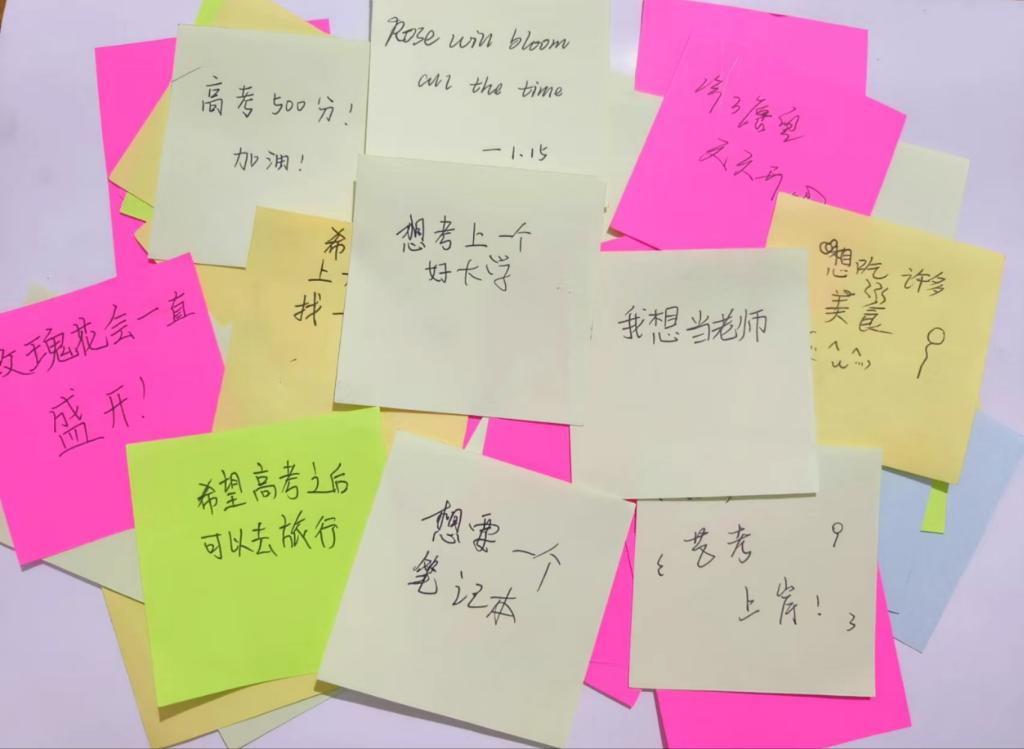 高考500分！
加油！
Rose will bloom
all the time
-1.15
天天开
希
上
找一
想考上一个
好大学
我想当老师
想吃 许多
美食
玫瑰花会一直
盛开！
希望高考之后
可以去旅行
想要一个
笔记本
艺考
上岸！